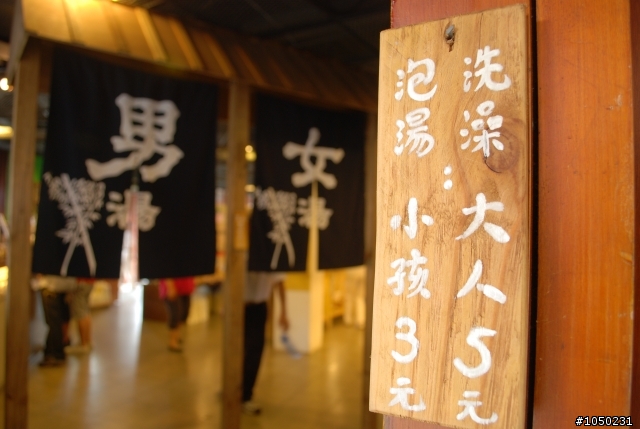 洗澡 大人5元
泡湯：小孩3元
男湯
女湯
#1050231